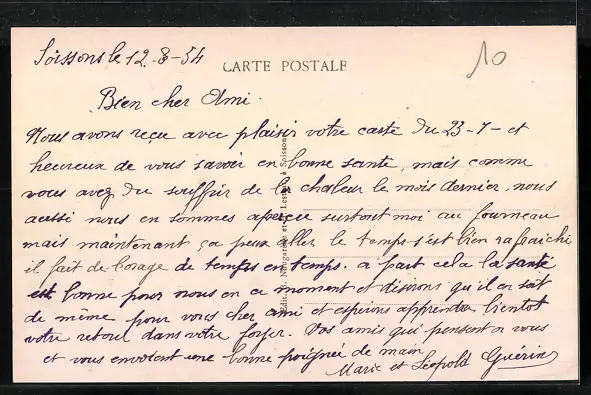 Soissons le 12-8-34
10
CARTE POSTALE
Bien cher Ami.
Nous avons reçu avec plaisir votre carte du 23-7- et
heureux de vous savoir en bonne santé, mais comme
vous avez du souffrir de la chaleur le mois dernier. nous
aussi nous en sommes aperçu surtout moi au fourneau
mais maintenant ça peux aller le temps s'est bien rafraichi
il fait de l'orage de temps en temps. a part cela la santé
est bonne pour nous en ce moment et désirons qu'il en soit
de même pour vous cher ami et espérons apprendre bientot
votre retour dans votre foyer. Vos amis qui pensent a vous
et vous envoient une bonne poignée de main
Marie et Léopold Guérin
Edit. Nougarède et Soissons